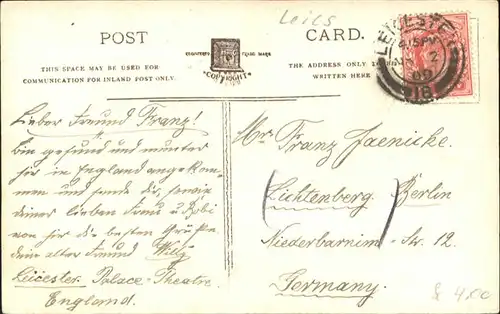 Leics
POST
CARD.
THIS SPACE MAY BE USED FOR
COMMUNICATION FOR INLAND POST ONLY.
TRADE MARK.
COPYRIGHT
THE ADDRESS ONLY TO BE
WRITTEN HERE
LEICESTER
8.15PM
2
09
Lieber Freund Franz!
Bin gesund und munter
hier in England angekom-
men und sende dir, sowie
deiner lieben Frau u. Bobi
von hir die besten Grüße
dein alter Freund Willy
Leicester. Palace-Theatre.
England.
Mr. Franz Jaenicke.
Lichtenberg. Berlin
Niederbarnim-Str. 12.
Germany.
4.00